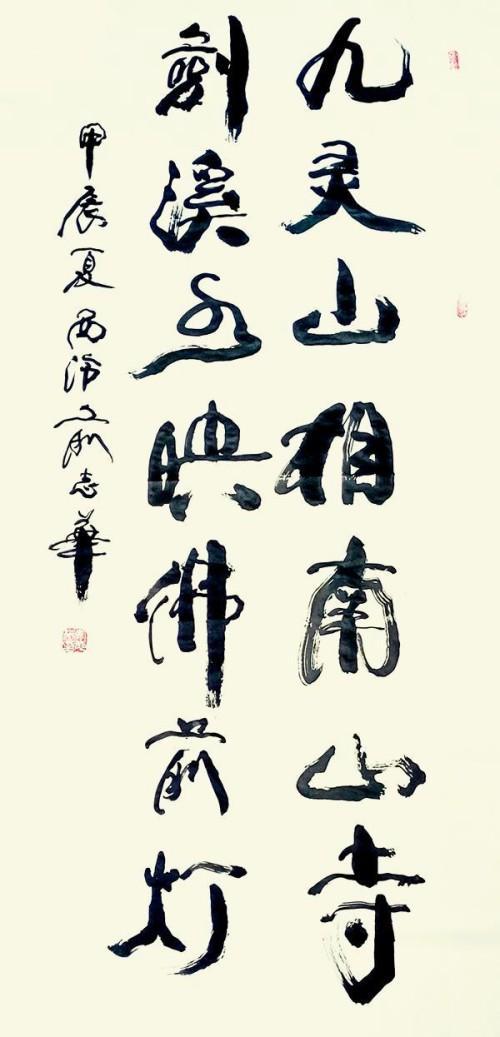 九灵山相南山寺
剑溪水映佛前灯
甲辰夏西泠前志华